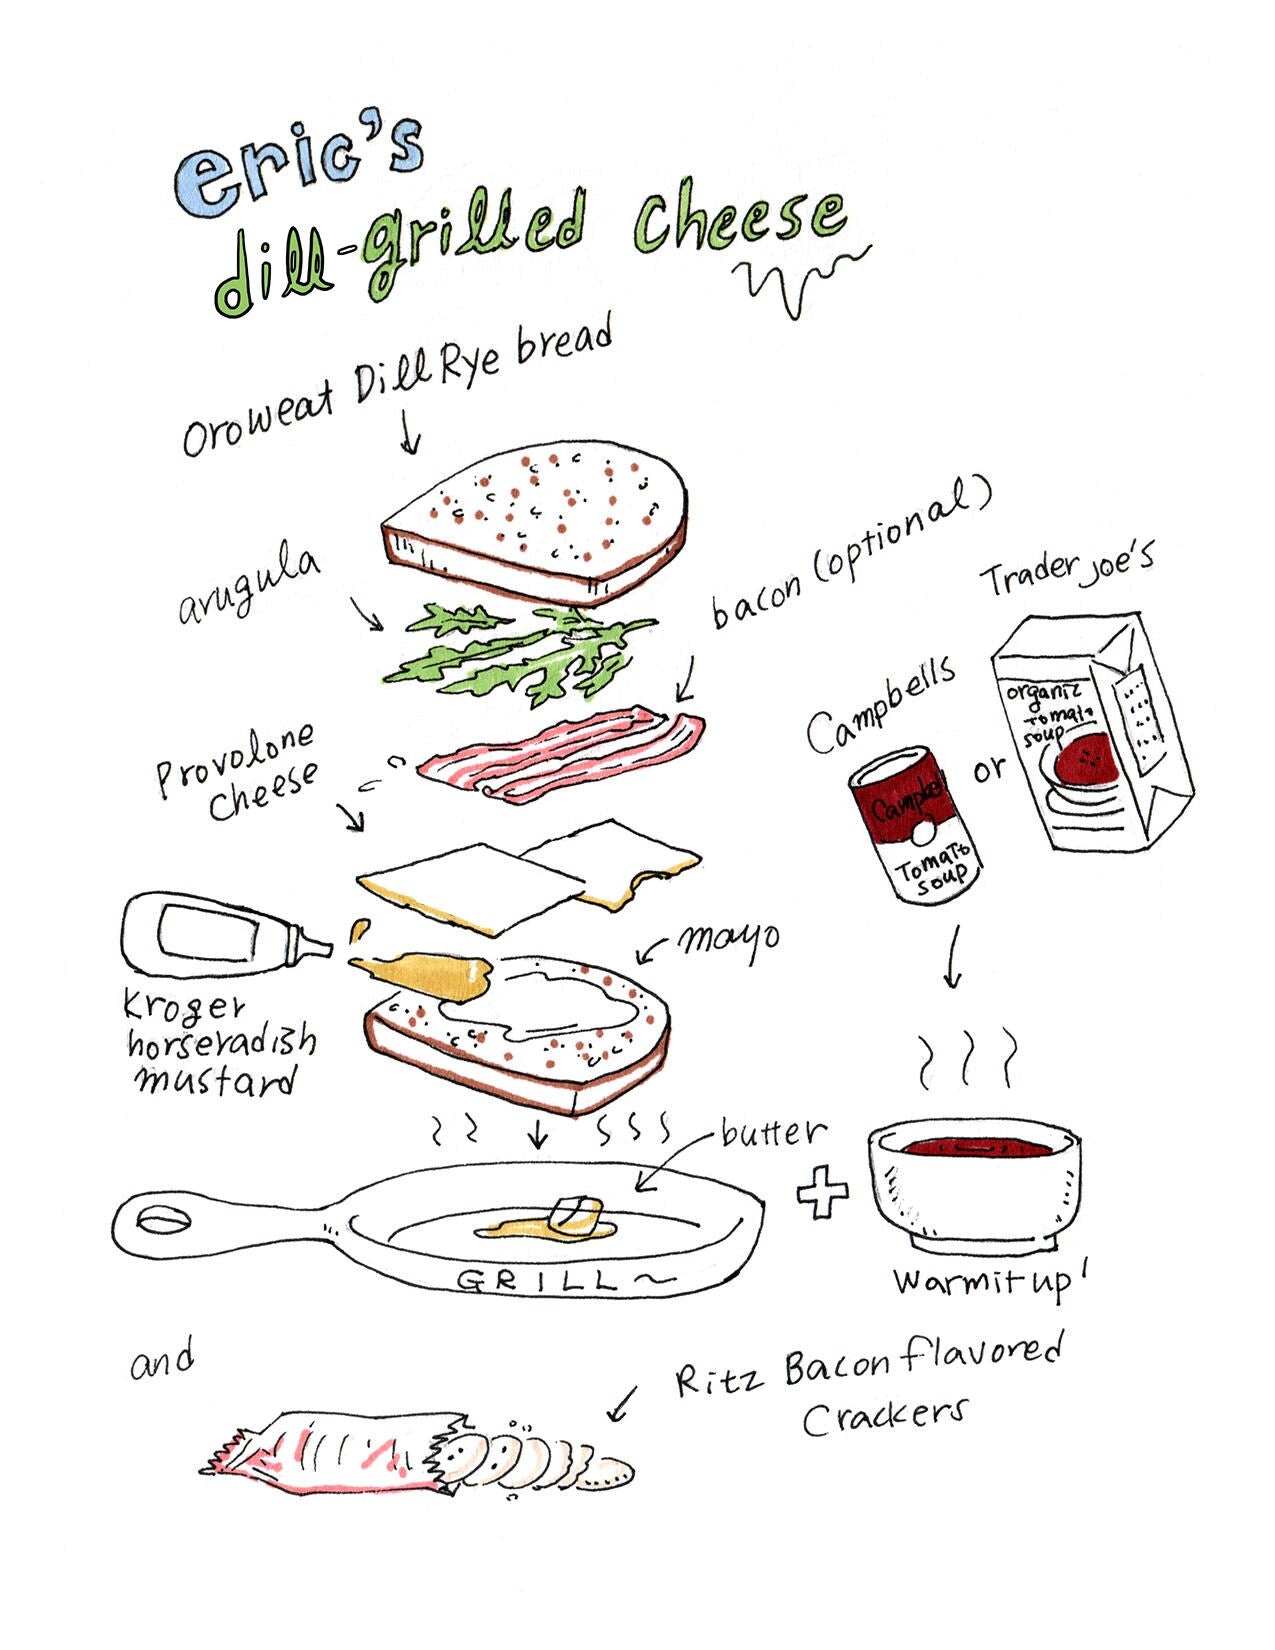 eric's
dill-grilled cheese
Oroweat Dill Rye bread
arugula
bacon (optional)
Trader Joe's
organic
tomato
soup
Campbells
or
Campbell
Tomato
soup
Provolone
cheese
mayo
Kroger
horseradish
mustard
butter
GRILL~
+
Warm it up!
and
Ritz Bacon flavored
Crackers